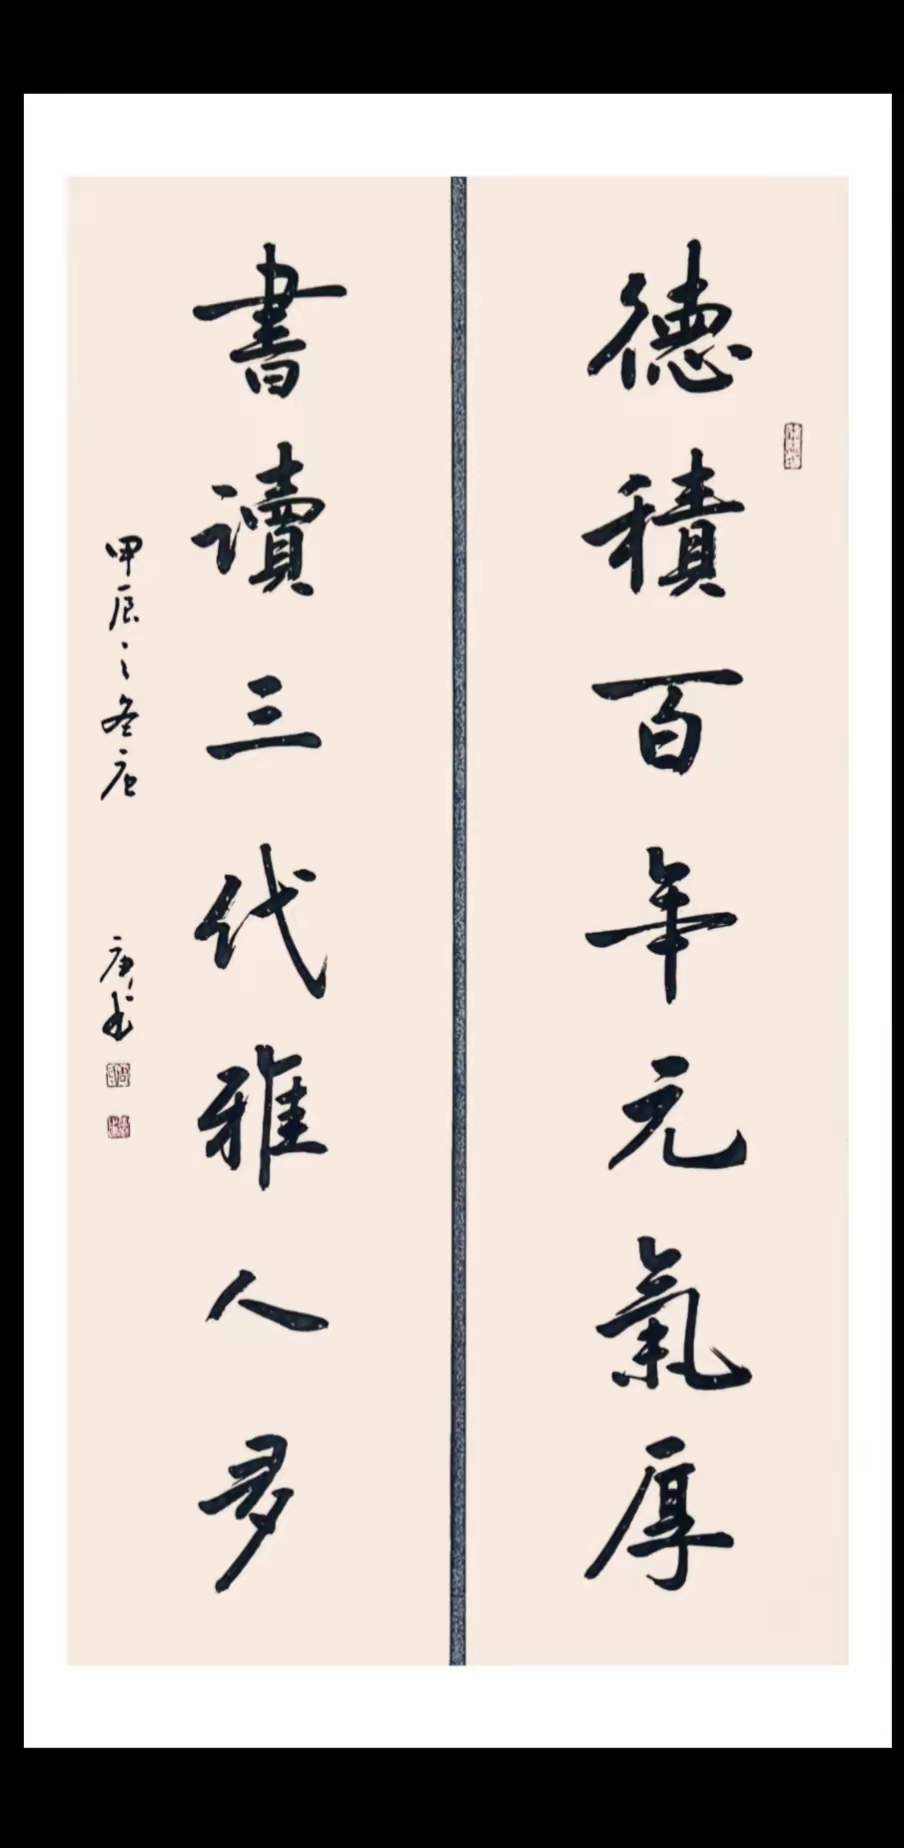 德積百年元氣厚
書讀三代雅人多
甲辰之冬月